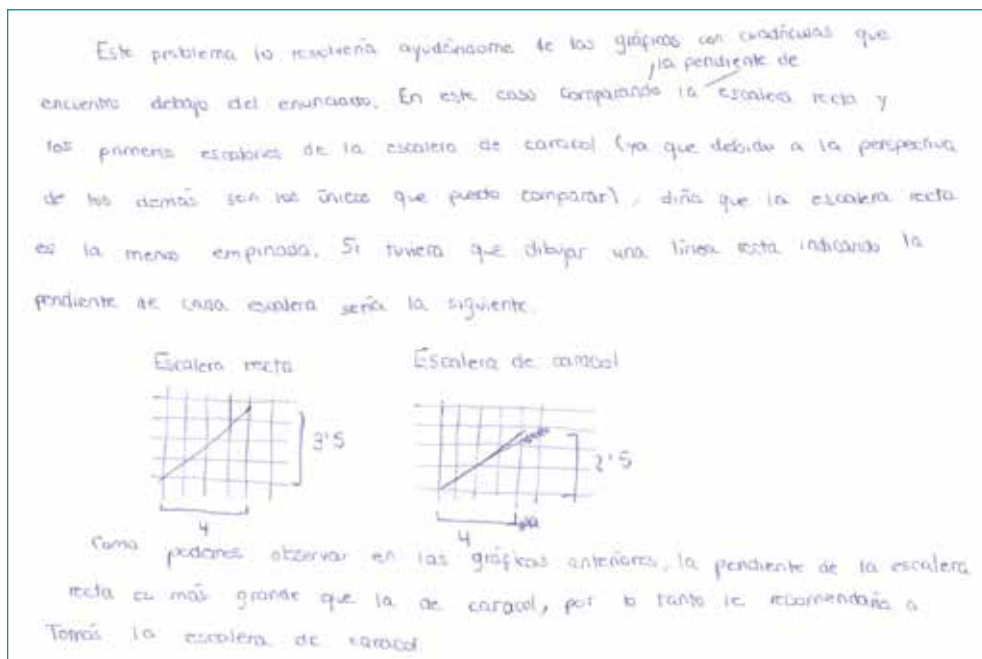 Este problema lo resolvería ayudándome de los gráficos con cuadrículas que
la pendiente de
encuentro debajo del enunciado. En este caso comparando la escalera recta y
los primeros escalones de la escalera de caracol (ya que debido a la perspectiva
de los demás son los únicos que puedo comparar), diría que la escalera recta
es la menos empinada. Si tuviera que dibujar una línea recta indicando la
pendiente de cada escalera sería la siguiente.
Escalera recta Escalera de caracol
3'5 2'5
4 4
Como podemos observar en las gráficas anteriores, la pendiente de la escalera
recta es más grande que la de caracol, por lo tanto le recomendaría a
Tomás la escalera de caracol.